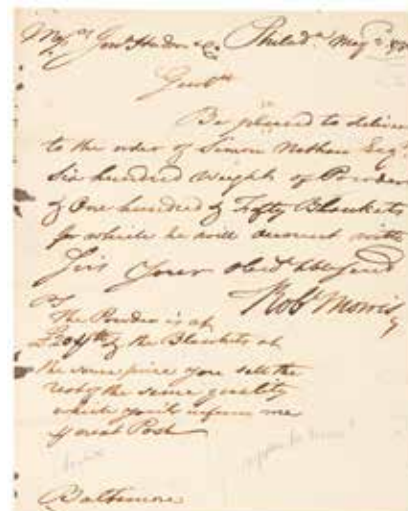 Philada. May
Gentn.
Be pleased to deliver
to the order of Simon Nathan Esqr.
Six hundred Weight of Powder
& One hundred & Fifty Blankets
for which he will account with
Your Obedt
Robt Morris
PS
The Powder is at
& the Blankets at
the same price you sell the
rest of the same quality
which you'll inform me
Post
Baltimore